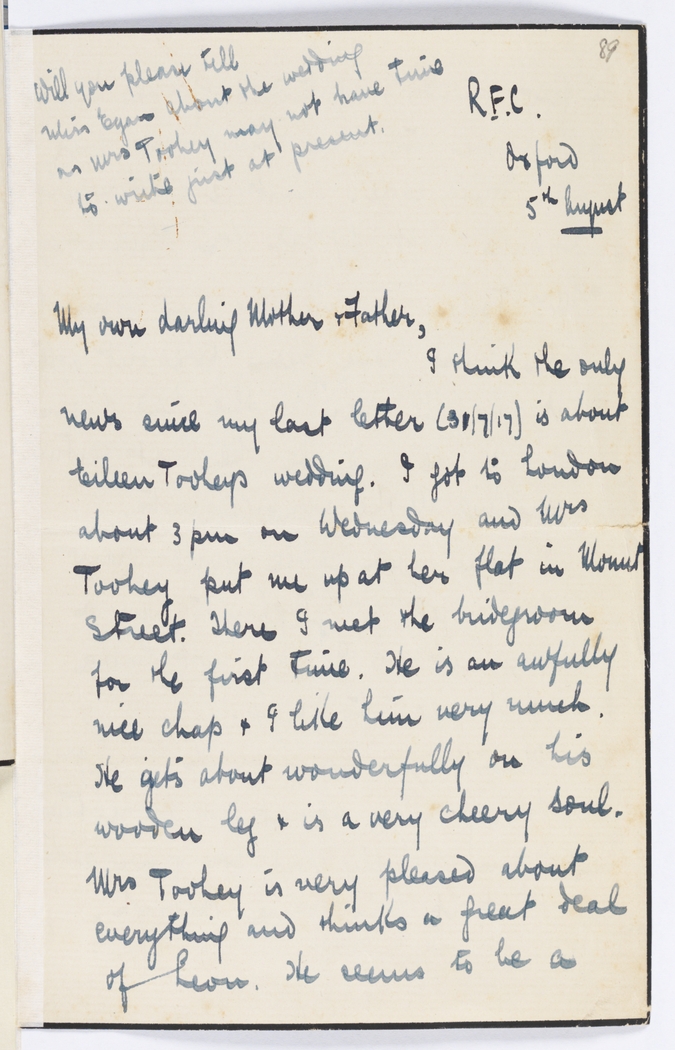 89
Will you please tell
Miss Egan about the wedding
as Mrs Toohey may not have time
to write just at present.
R.F.C.
Oxford
5th August
My own darling Mother & Father,
I think the only
news since my last letter (31/7/17) is about
Eileen Tooheys wedding. I got to London
about 3 pm on Wednesday and Mrs
Toohey put me up at her flat in Mount
Street. There I met the bridegroom
for the first time. He is an awfully
nice chap & I like him very much.
He gets about wonderfully on his
wooden leg & is a very cheery soul.
Mrs Toohey is very pleased about
everything and thinks a great deal
of Leon. He seems to be a